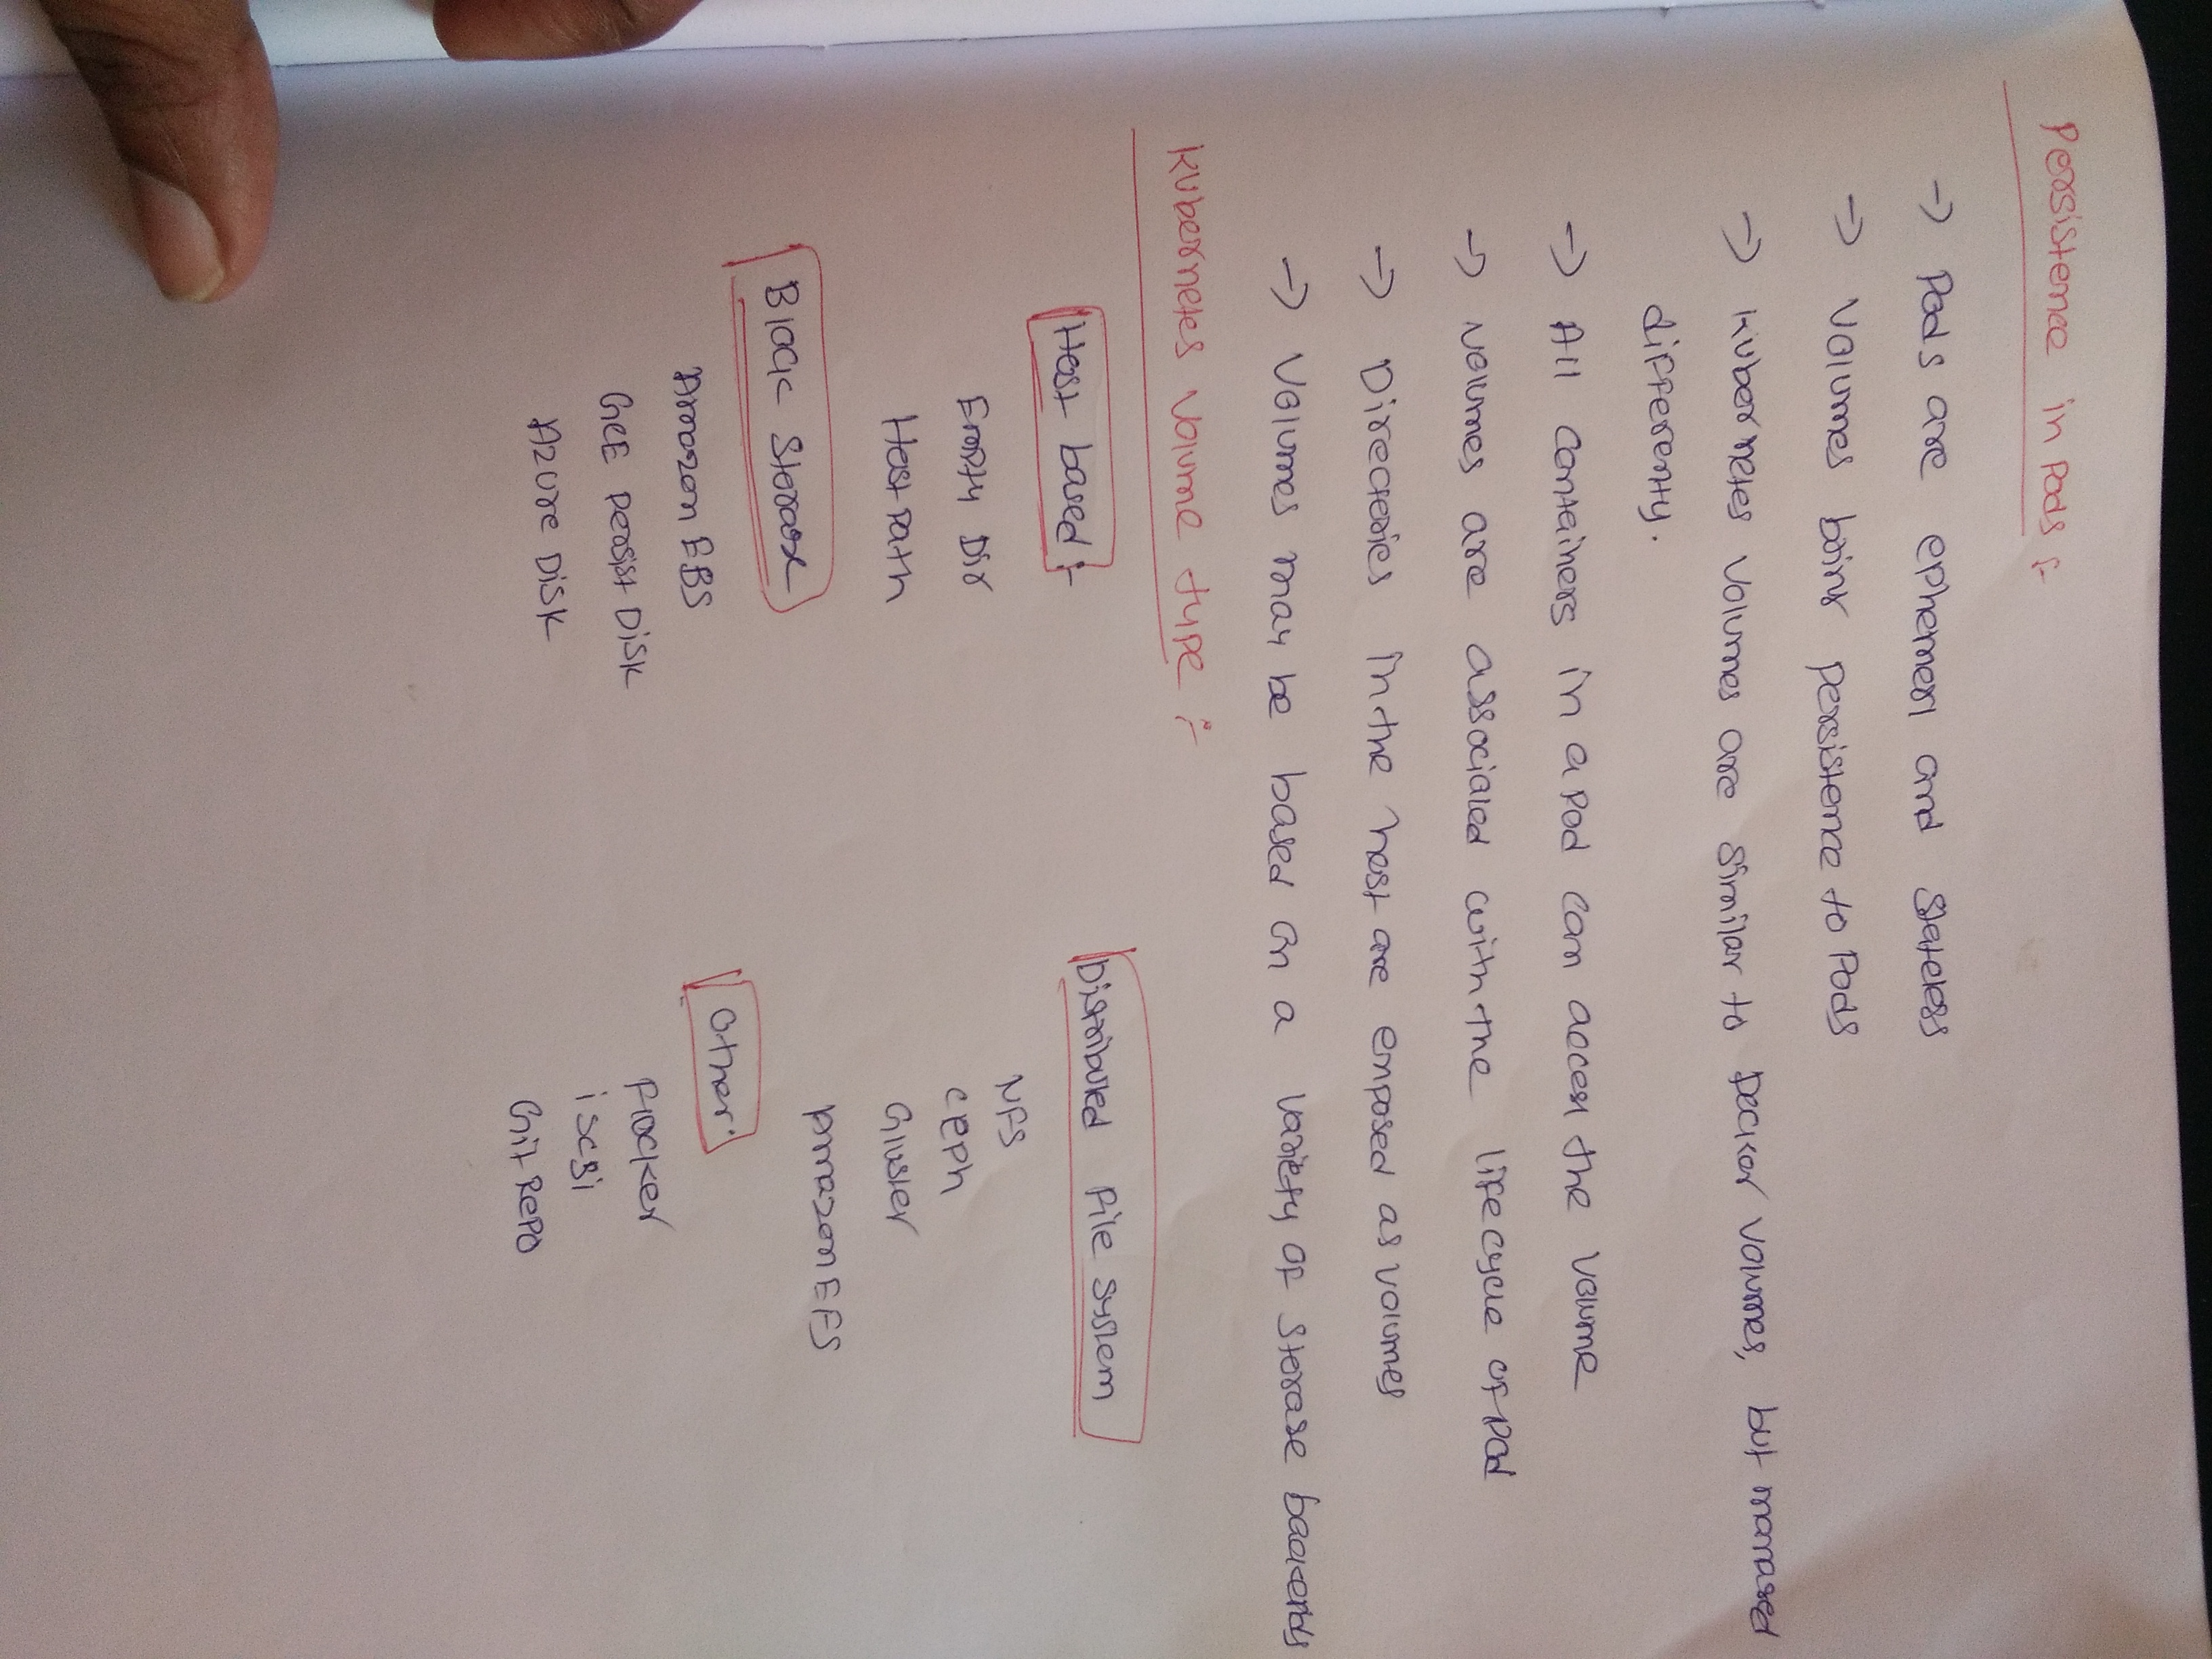 Persistence in Pods :-
-> Pods are ephemerl and stateless
-> Volumes bring persistence to Pods
-> Kubernetes Volumes are similar to Docker Volumes, but managed
differenty.
-> All containers in a pod can access the volume
-> volumes are associated with the lifecycle of pod
-> Directories in the host are exposed as volumes
-> Volumes may be based on a variety of storage backends
Kubernetes volume type :-
Host based :-
Empty Dir
Host path
Block Storage
Amazon EBS
GCE Persist Disk
Azure Disk
Distributed File System
NFS
ceph
Gluster
Amazon EFS
Other:
Flocker
iscsi
Git Repo